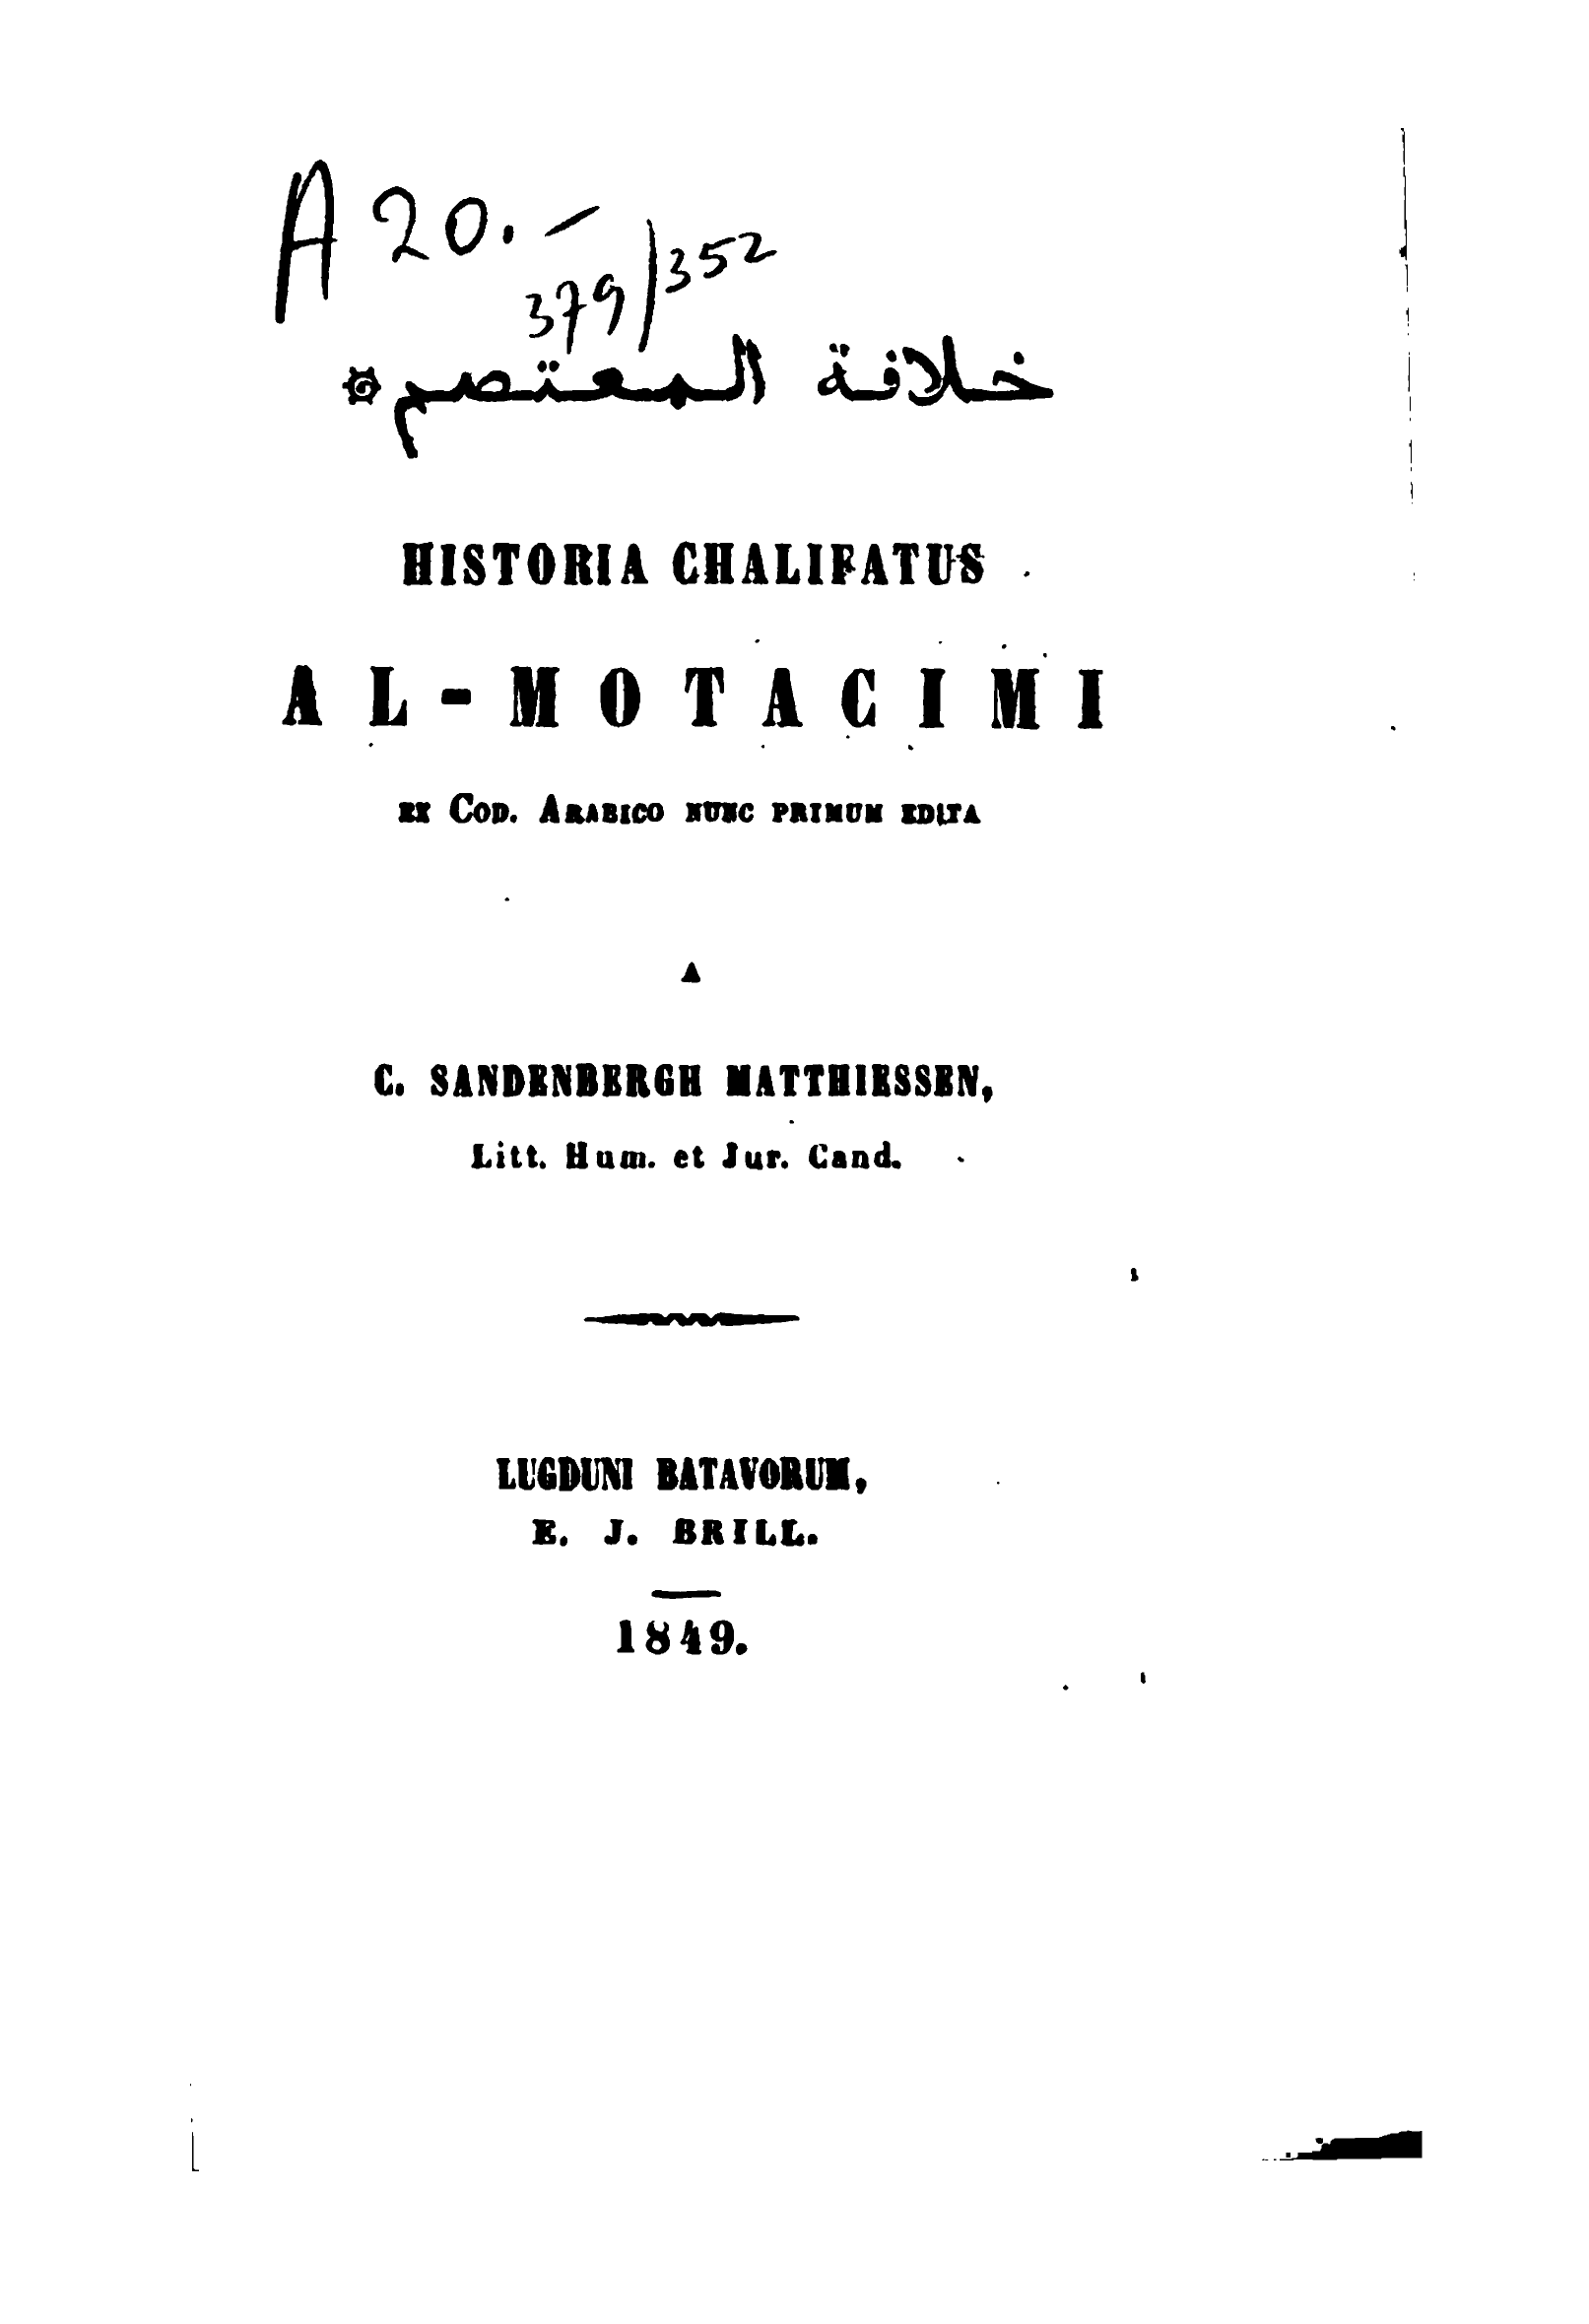 A 20.-
379/352
خلافة المعتصم
HISTORIA CHALIFATUS
AL-MOTACIMI
EX COD. ARABICO NUNC PRIMUM EDITA
A
C. SANDENBERGH MATTHIESSEN,
Litt. Hum. et Jur. Cand.
LUGDUNI BATAVORUM,
E. J. BRILL.
1849.